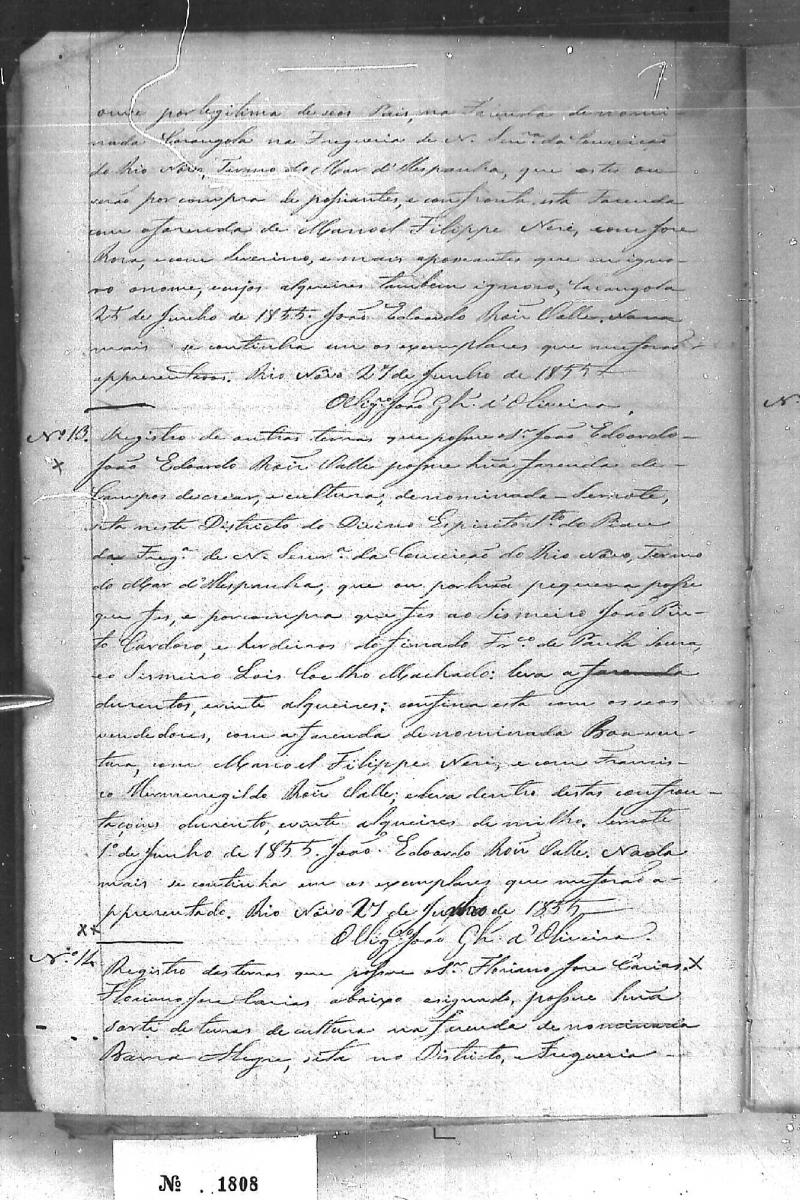 ouve por legitima de seos Pais, na Fazenda denomi-
nada Carangola na Freguezia de N. Senrª da Conceição
do Rio Novo, Termo do Mar d'Hespanha, que estes ou-
verão por compra de possiantes, e confronta esta Fazenda
com a fazenda de Manoel Filippe Neri, com José
Rosa, e com Severino, e mais apossiantes que eu igno-
ro o nome, cujos alqueires tambem ignoro, Carangola
25 de Junho de 1855. João Edoardo Roiz Valle. Nada
mais se continha em os exemplares que me forão
appresentados. Rio Novo 27 de Junho de 1855
O Vigrº João Gl. d'Oliveira.
Nº 13. Registro de outras terras que possue o Sr. João Edoardo
João Edoardo Roiz Valle possue huã fazenda de
Campos de crear, e culturas, denominada Semote,
sita neste Districto do Divino Espirito Stº do Piau
da Fregª de N. Senrª da Conceição do Rio Novo, Termo
do Mar d'Hespanha, que ou por huã pequena posse
que fes, e por compra que fes ao Sismeiro João Pin-
to Cardoso, e herdeiros do finado Frcº de Paula
e o Sismeiro Lois Coelho Machado: leva a fazenda
duzentos, e vinte alqueires; confina esta com os seos
vendedores, com a fazenda denominada Boa ven-
tura, com Manoel Filippe Neri, e com Francis-
co Hermenegildo Roiz Valle; e leva dentro destas confron-
taçoins duzento, e vinte alqueires de milho. Semote
1º de Junho de 1855. João Edoardo Roiz Valle. Nada
mais se continha em os exemplares que me forão a-
ppresentado. Rio Novo 27 de Junho de 1855
O Vigrº João Gl. d'Oliveira.
Nº 14 Registro das terras que possue o Sr. Floriano José Carias.
Floriano José Carias abaixo asignado, possue huã
sorte de terras de cultura na fazenda denominada
Barra Alegre, sita no Districto, e Freguezia
Nº 1808